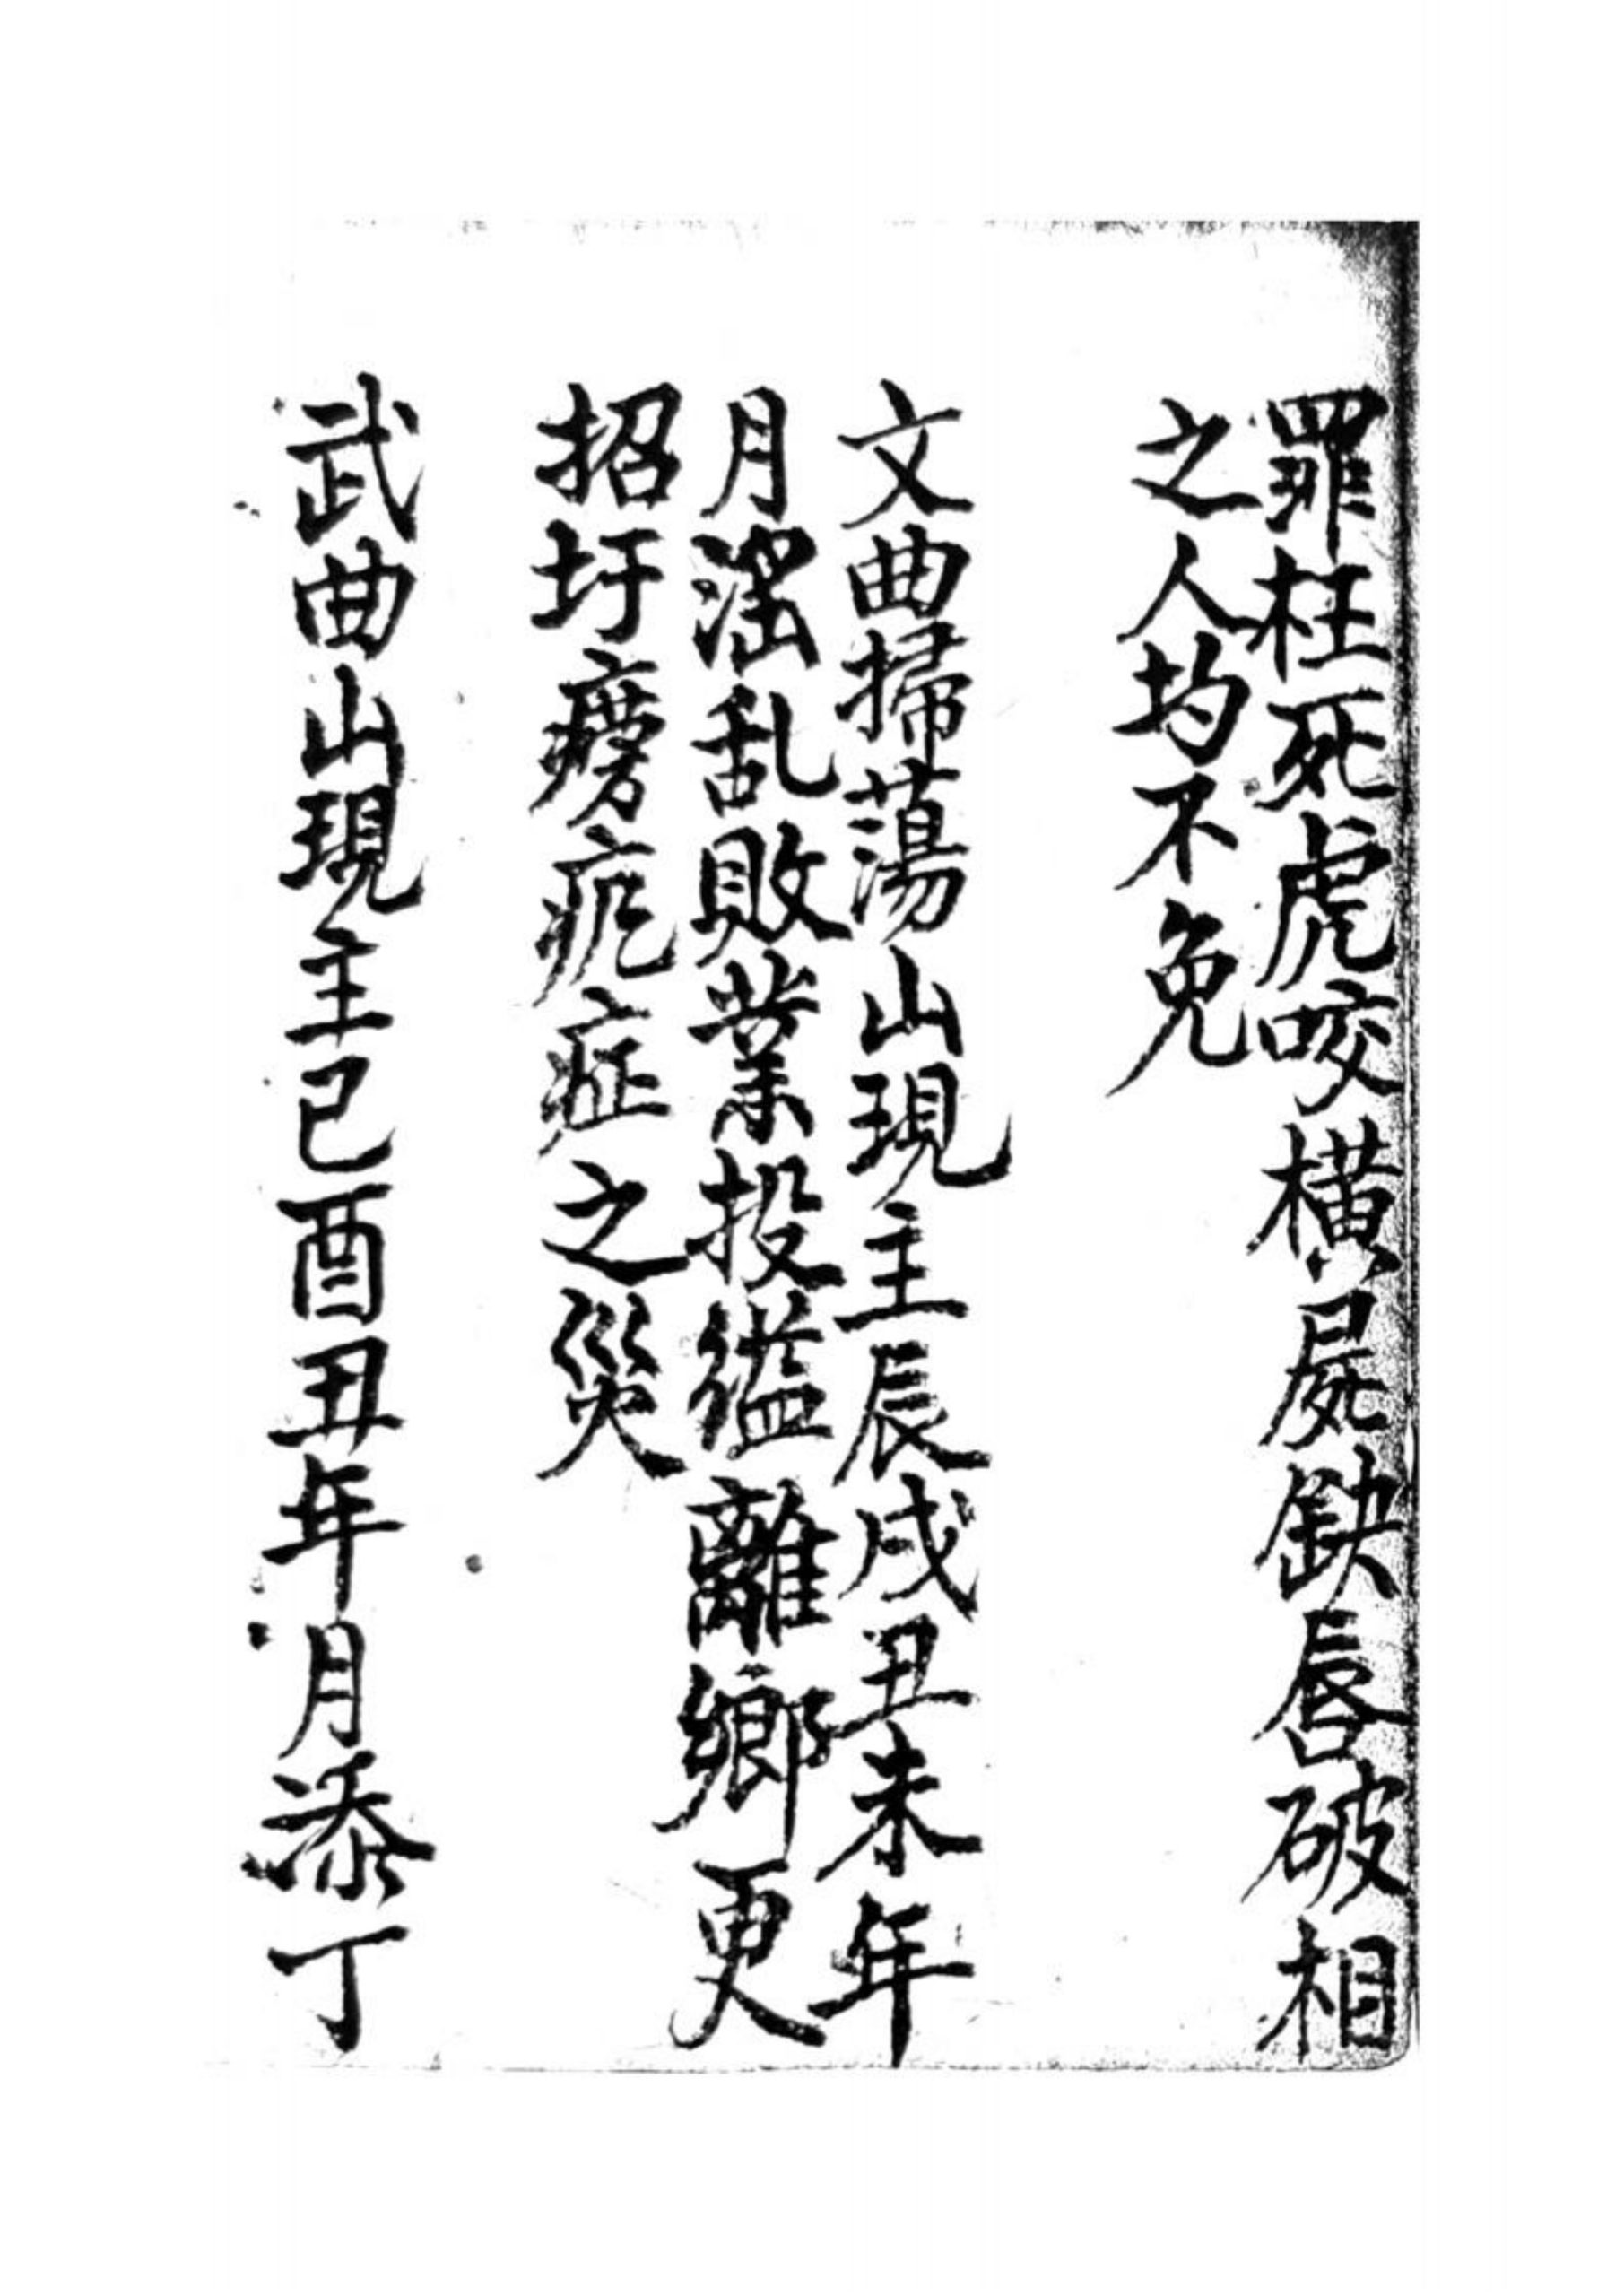 罪枉死虎咬橫屍缺唇破相
之人均不免
文曲掃蕩山現主辰戌丑未年
月滛乱敗業投離鄉更
招之災
武曲山現主巳酉丑年月添丁